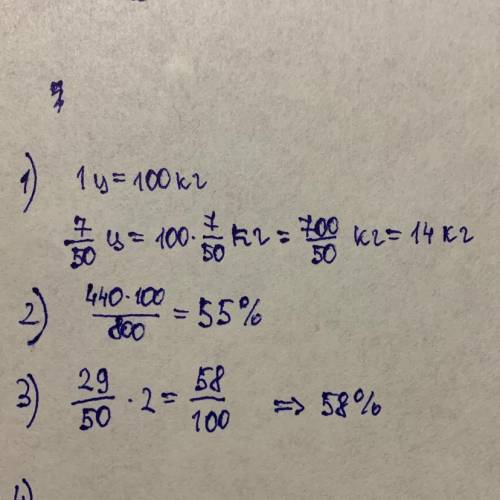 1) 1 ц = 100 кг
7/50 ц = 100 · 7/50 кг = 700/50 кг = 14 кг
2) 440·100/800 = 55%
3) 29/50 · 2 = 58/100 => 58%